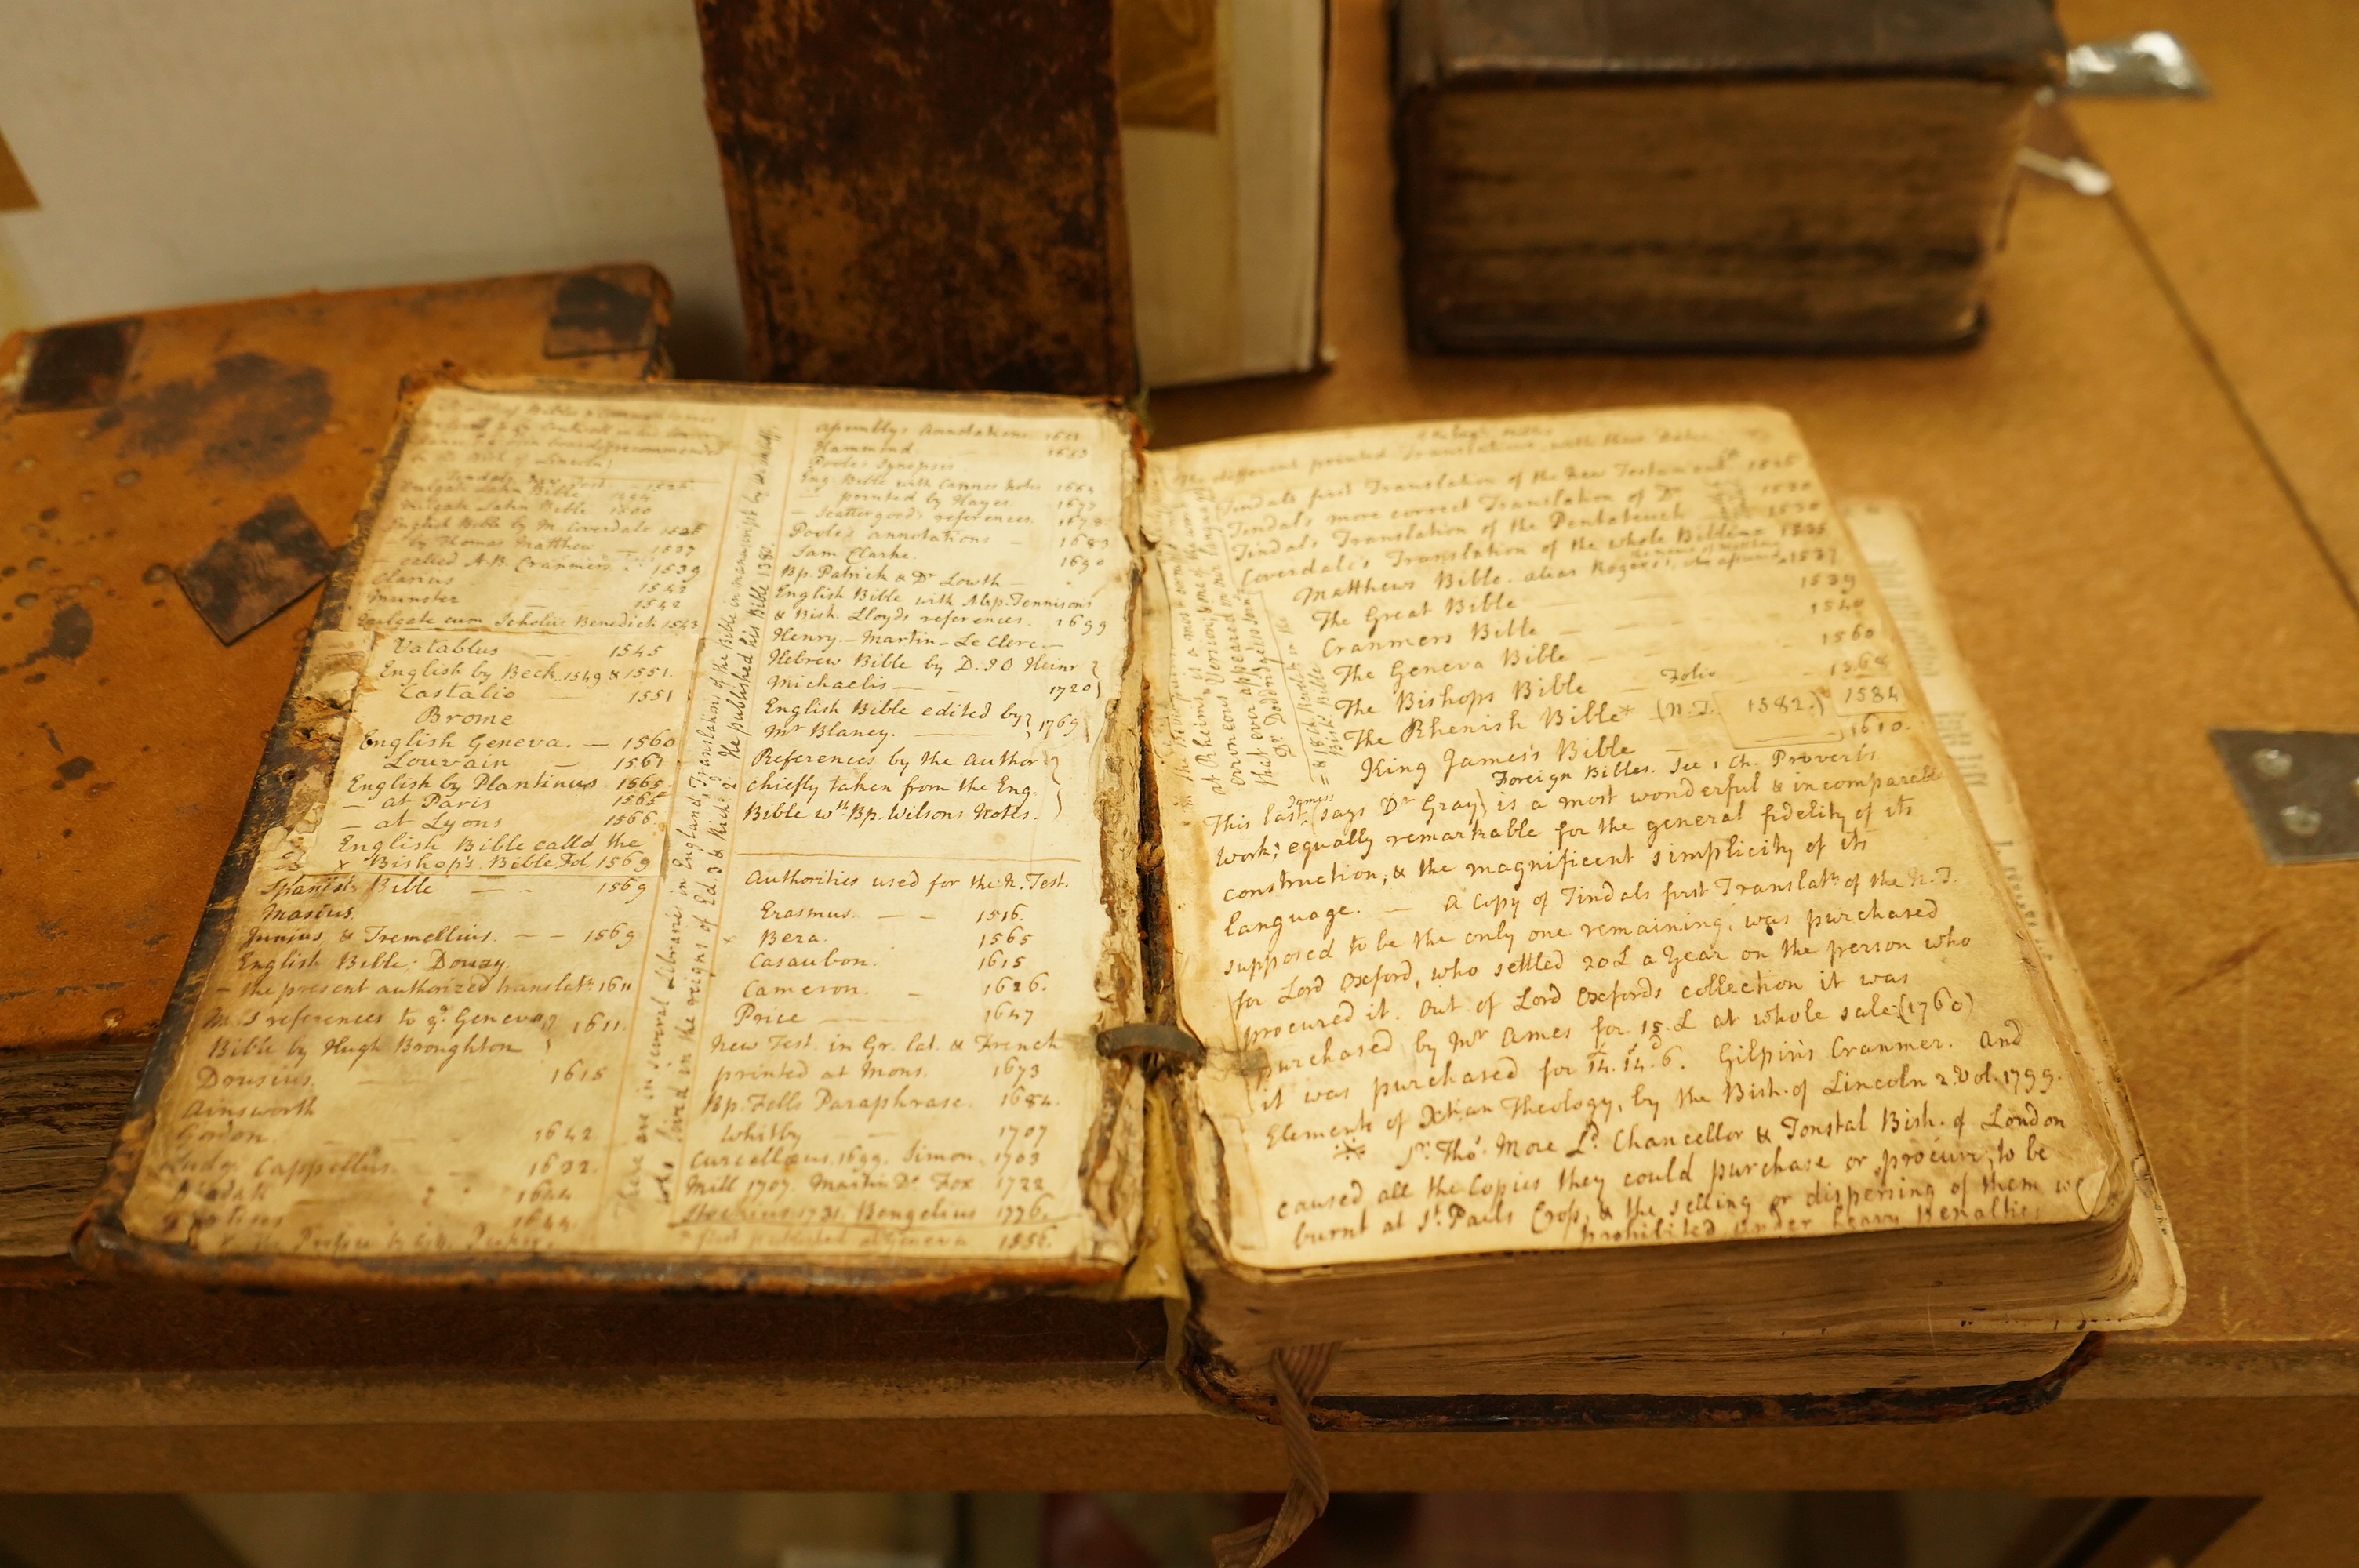 Vulgate Latin Bible
Vulgate Latin Bible 1500
English Bible by M. Coverdale 1535
— by Thomas Matthew — 1537
— called A.B. Cranmers 1539
Clarius 1542
Munster — 1542
Vulgate cum Scholiis Benedicti 1543
Vatablus — 1545
English by Beck. 1549 & 1551.
Castalio — 1551
Brome
English Geneva. — 1560
Louvain — 1561
English by Plantinus 1565.
— at Paris 1565
— at Lyons 1566
English Bible calld the
x Bishop's Bible. Fol. 1569
Spanish Bible — 1569
Masius.
Junius, & Tremellius. — — 1569
English Bible; Douay.
— the present authorized translatn. 1611
references to ye. Geneva,
Bible by Hugh Broughton } 1611.
Drusius. — 1615
Ainsworth
Gordon. — 1642
Cappellus. — 1632.
1644
1644.
There are in several Libraries in England, Translations of the Bible in manuscript by
who lived in the reigns of Ed. 3 & Rich. 2d. He published his Bible 1380.
Assembly's Annotations 1651
Hammond. 1653
Pooles Synopsis
Eng. Bible with Cannes Notes 1664
— printed by Hayes. 1677
— Scattergoods references. 1678
Pooles annotations — 1683
Sam Clarke. 1690
Bp. Patrick & Dr Lowth —
English Bible with Abp. Tennisons
& Bish. Lloyds references. 1699
Henry. — Martin — Le Clerc —
Hebrew Bible by D. IO Heinr
Michaelis — 1720 }
English Bible edited by
Mr Blaney. — } 1769
References by the author
chiefly taken from the Eng. }
Bible wth Bp. Wilsons Notes.
Authorities used for the N. Test.
Erasmus. — — 1516.
x Beza. 1565
Casaubon. 1615
Cameron. — 1626.
Price — 1647
New Test. in Gr. Lat. & French
printed at Mons. 1673
Bp. Fells Paraphrase. 1684.
Whitby — 1707
Curcellæus. 1699. Simon. 1703
Mill 1707. Martin Dr. Fox 1722
1731. Bengelius 1776.
first published at Geneva 1556.
The different printed Translations, with their Dates
Tindals first Translation of the New Testament 1526
Tindals more correct Translation of Do. 1530
Tindals Translation of the Pentateuch 1530
Coverdale's Translation of the whole Bible — 1535
Matthews Bible. alias Rogers's, who assumed 1537
The Great Bible — 1539
Cranmers Bible — 1540
The Geneva Bible — 1560
The Bishops Bible — Folio 1568
The Rhenish Bible* (N.T. 1582.) 1584
King James's Bible 1610.
Foreign Bibles. See 1 Ch. Proverbs
This last, James (says Dr Gray) is a most wonderful & incomparable
Work; equally remarkable for the general fidelity of its
construction, & the magnificent simplicity of its
language. — A Copy of Tindals first Translatn of the N.T.
supposed to be the only one remaining, was purchased
for Lord Oxford, who settled 20£ a Year on the person who
procured it. Out of Lord Oxfords collection it was
purchased by Mr Ames for 15.£ at whole sale: (1760)
it was purchased for 14. 14. 6. Gilpin's Cranmer. And
Elements of Xtian Theology, by the Bish. of Lincoln 2. Vol. 1799.
Sr. Thos. More Ld. Chancellor & Tonstal Bish. of London
caused all the Copies they could purchase or procure, to be
burnt at St. Pauls Cross, & the selling or dispersing of them
prohibited under heavy Penalties